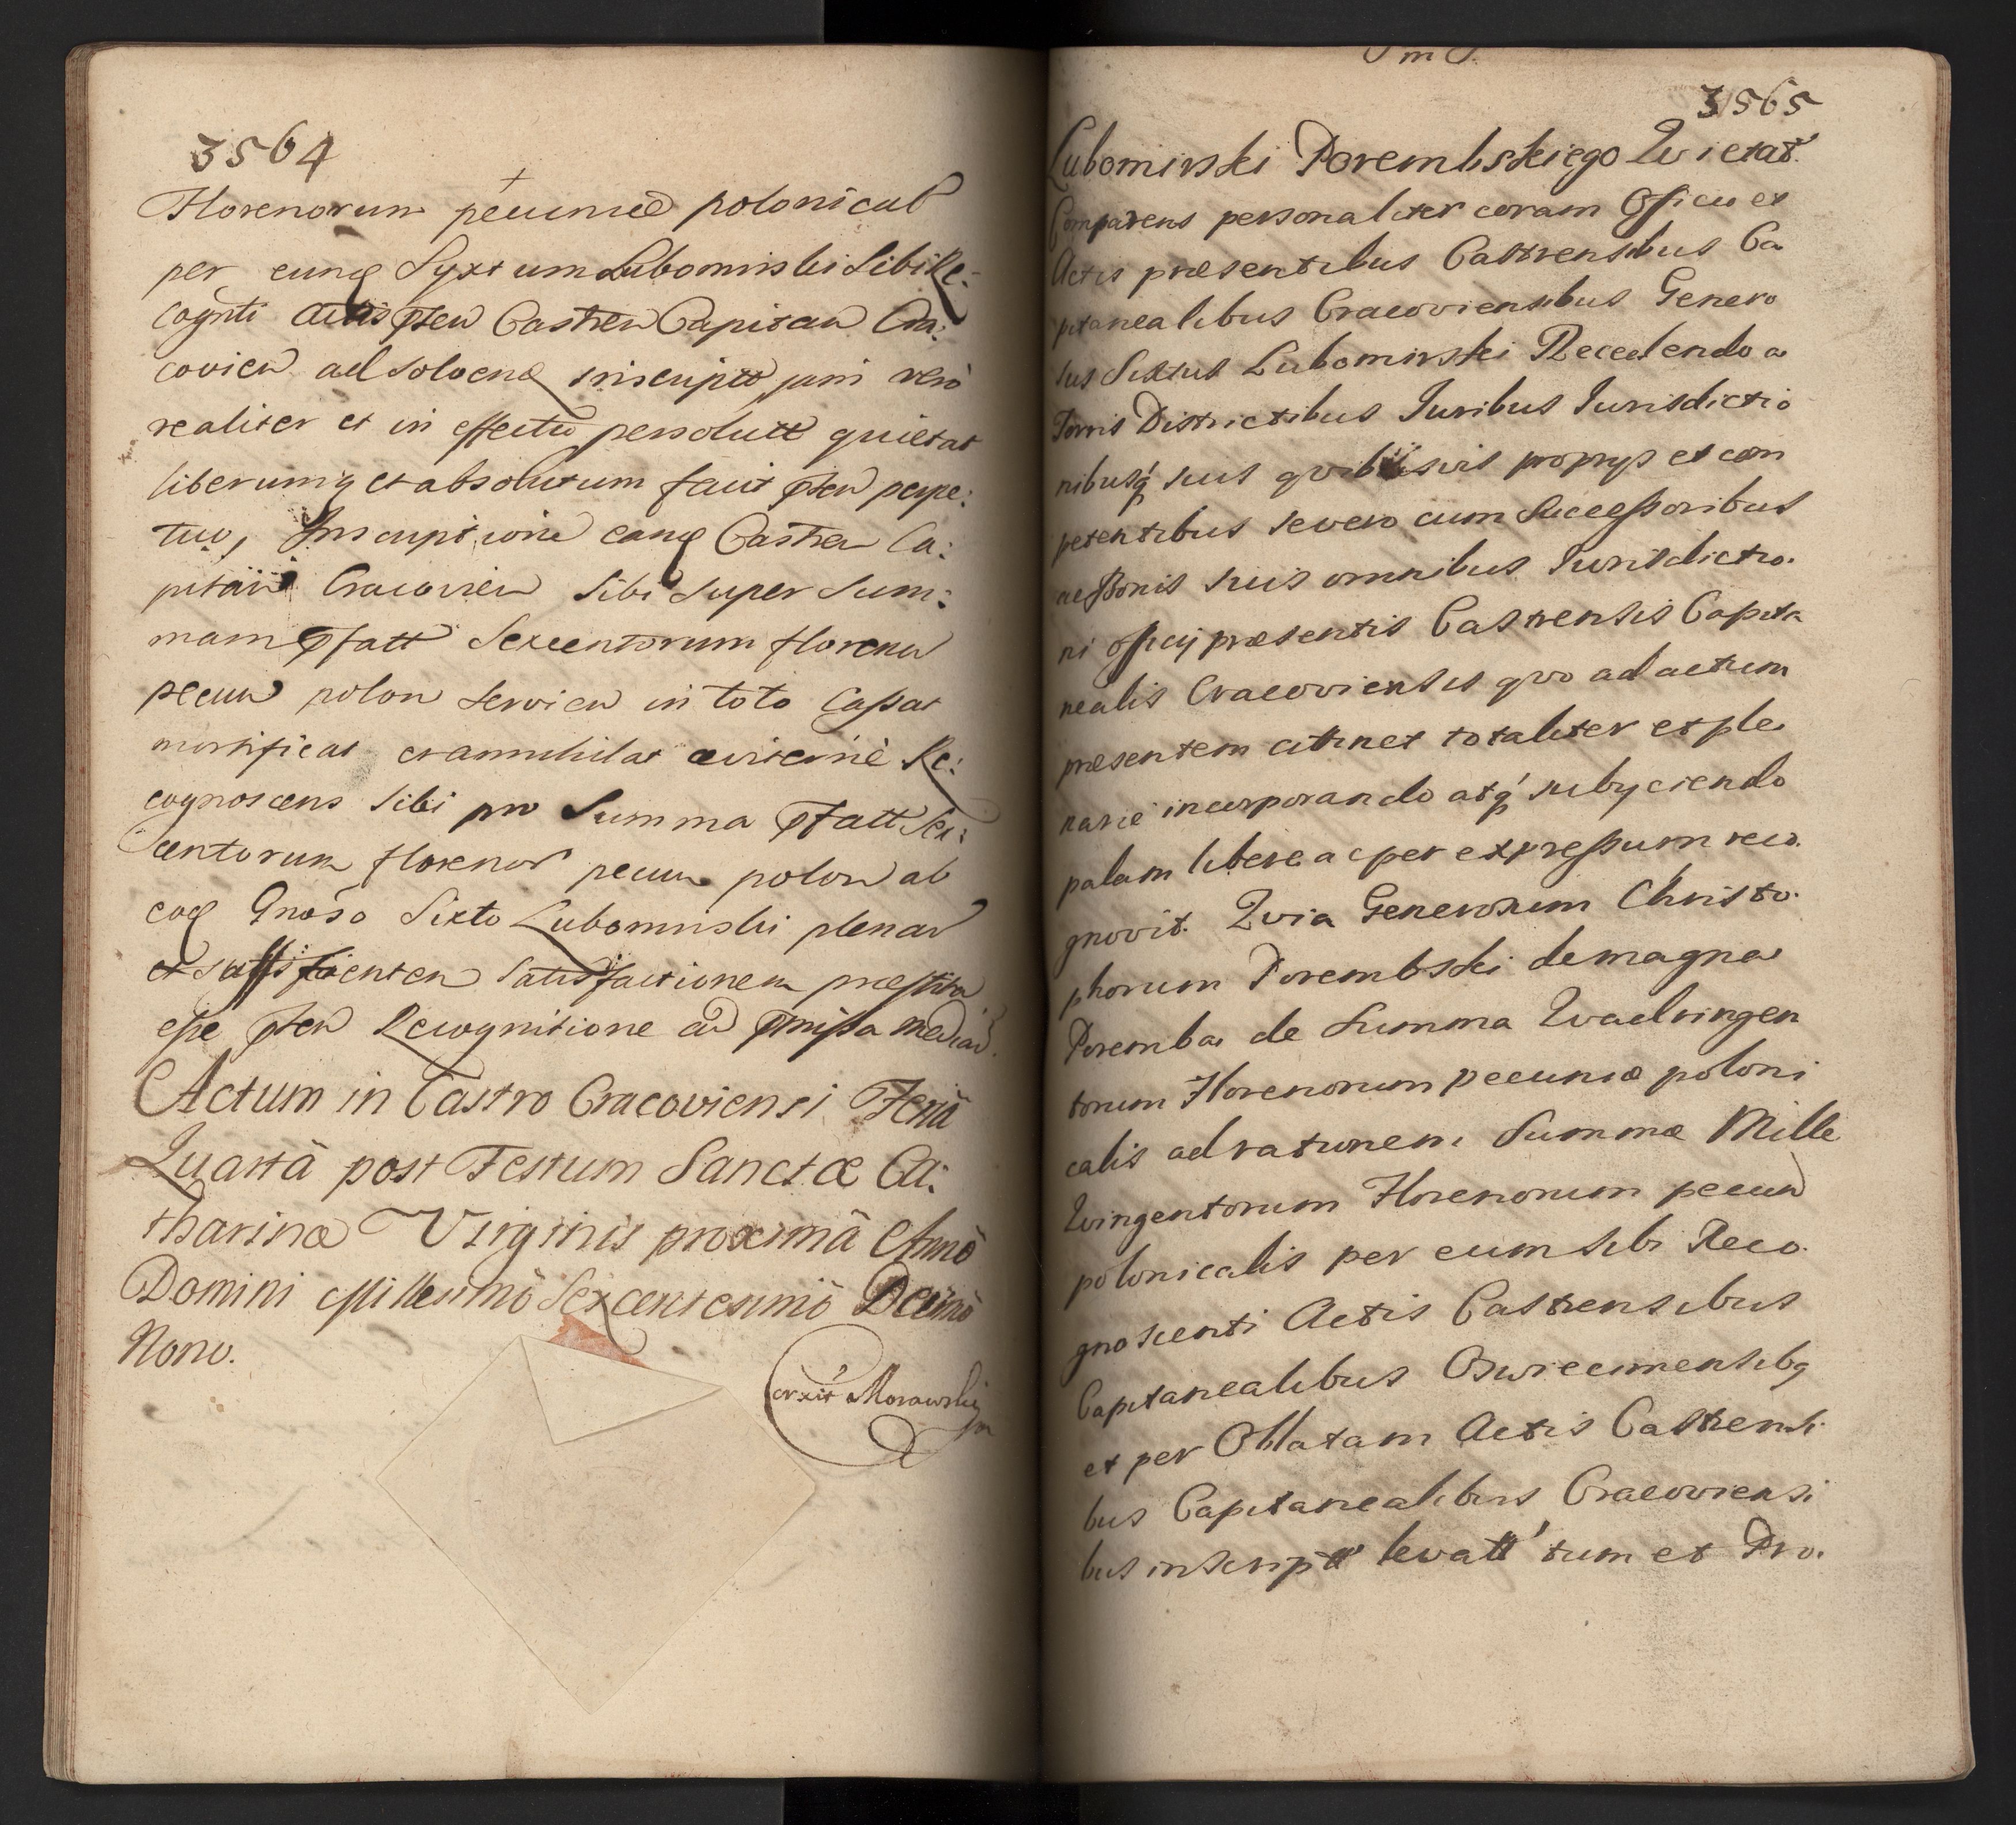 3564
Florenorum pecuniæ polonical
per eunq Syxtum Lubomirski sibi Re-
cognti Actis pten Castren Capitan Cra:
covien ad solvend inscriptt jam vero
realiter et in effectu persolutt quietat
liberumq et absolutum facit pten perpe:
tuo, Inscriptione eanq Castren Ca:
pitan Cracovien sibi super Sum:
mam pfatt Sexcentorum floren
pecun polon servien in toto Cassat
mortificat et annihilat
cognoscens sibi pro Summa pfatt Sex:
centorum florenor pecun polon ab
eoq Gnoso Sixto Lubomirski plenar
et sufficienten satisfactionem præstita
esse pten Recognitione ad pmissa median.
Actum in Castro Cracoviensi Feriâ
Quartâ post Festum Sanctæ Ca:
tharinæ Virginis proximâ Annô
Domini Millesimô Sexcentesimô Decimô
Nono.
corxit Morawski
3565
Lubomirski Porembskiego Qvietat.
Comparens personaliter coram Officio et
Actis præsentibus Castrensibus Ca
pitanealibus Cracoviensibus Genero
sus Sixtus Lubomirski Recedendo a
Terris Districtibus Iuribus Iurisdictio
nibusq' suis qvibusvis proprijs et com
petentibus se vero cum Successoribus
ac Bonis suis omnibus Iurisdictio.
ni officij præsentis Castrensis Capita
nealis Cracoviensis qvo ad actum
præsentem attinet totaliter et ple
narie incorporando atq' subyciendo
palam libere ac per expressum reco.
gnovit. Qvia Generosum Christo.
phorum Porembski de magna
Poremba de Summa Qvadringen
torum Florenorum pecuniæ poloni
calis ad rationem Summæ Mille
Qvingentorum Florenorum pecun
polonicalis per eum sibi Reco.
gnoscenti Actis Castrensibus
Capitanealibus Oswiecimensibq
et per Oblatam Actis Castrensi
bus Capitanealibus Cracoviensi
bus inscriptt levatt' tum et Pro.